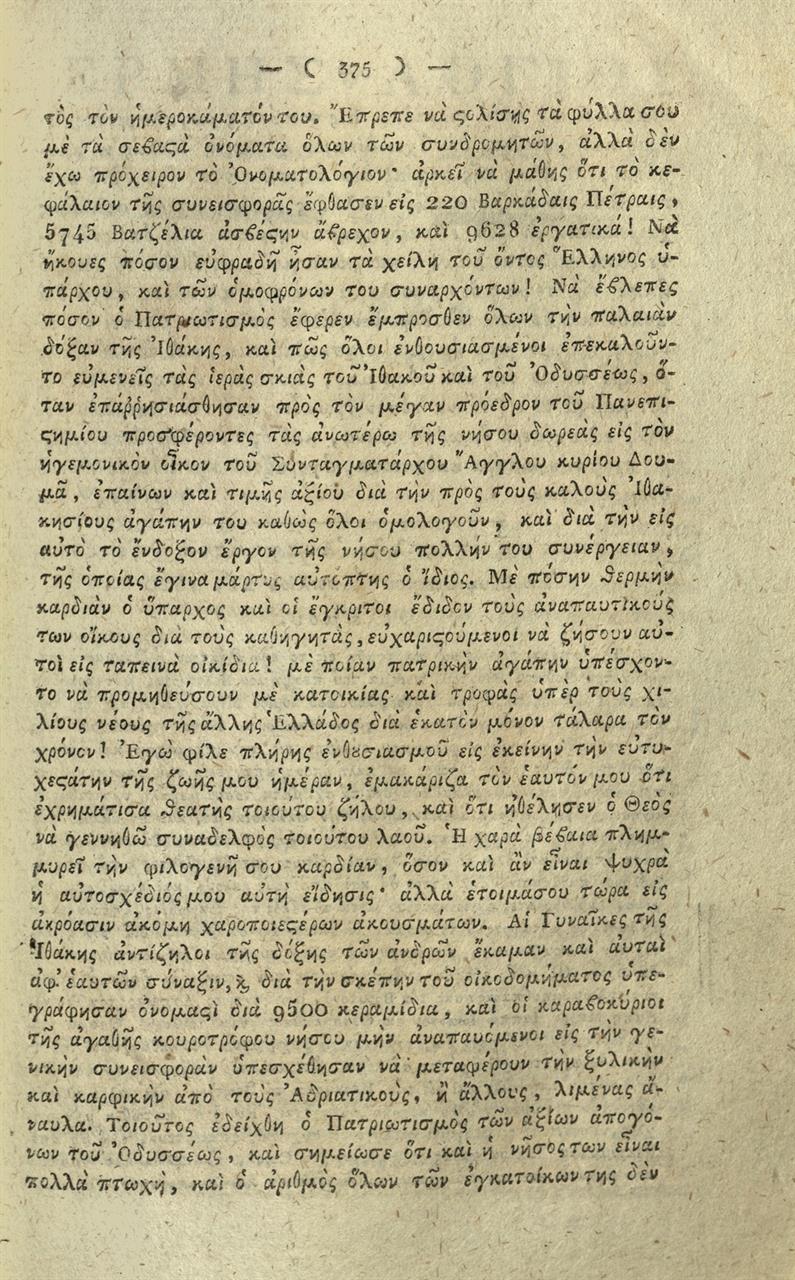 — ( 375 ) —
τὸς τὸν ἡμεροκάματόν του. Ἔπρεπε νὰ ϛολίσῃς τὰ φύλλα σου
μὲ τὰ σεβαϛὰ ὀνόματα ὅλων τῶν συνδρομητῶν, ἀλλὰ δὲν
ἔχω πρόχειρον τὸ Ὀνοματολόγιον· ἀρκεῖ νὰ μάθῃς ὅτι τὸ κε-
φάλαιον τῆς συνεισφορᾶς ἔφθασεν εἰς 220 Βαρκάδαις Πέτραις,
5745 Βατζέλια ἀσβέϛην ἄβρεχον, καὶ 9628 ἐργατικά! Νὰ
ἤκουες πόσον εὐφραδῆ ἦσαν τὰ χείλη τοῦ ὄντος Ἕλληνος ὑ-
πάρχου, καὶ τῶν ὁμοφρόνων του συναρχόντων! Νὰ ἔβλεπες
πόσον ὁ Πατριωτισμὸς ἔφερεν ἔμπροσθεν ὅλων τὴν παλαιὰν
δόξαν τῆς Ἰθάκης, καὶ πῶς ὅλοι ἐνθουσιασμένοι ἐπεκαλοῦν-
το εὐμενεῖς τὰς ἱερὰς σκιὰς τοῦ Ἰθακοῦ καὶ τοῦ Ὀδυσσέως, ὅ-
ταν ἐπαῤῥησιάσθησαν πρὸς τὸν μέγαν πρόεδρον τοῦ Πανεπι-
ϛημίου προσφέροντες τὰς ἀνωτέρω τῆς νήσου δωρεὰς εἰς τὸν
ἡγεμονικὸν οἶκον τοῦ Συνταγματάρχου Ἄγγλου κυρίου Δου-
μᾶ, ἐπαίνων καὶ τιμῆς ἀξίου διὰ τὴν πρὸς τοὺς καλοὺς Ἰθα-
κησίους ἀγάπην του καθὼς ὅλοι ὁμολογοῦν, καὶ διὰ τὴν εἰς
αὐτὸ τὸ ἔνδοξον ἔργον τῆς νήσου πολλήν του συνέργειαν,
τῆς ὁποίας ἔγινα μάρτυς αὐτόπτης ὁ ἴδιος. Μὲ πόσην θερμὴν
καρδιὰν ὁ ὕπαρχος καὶ οἱ ἔγκριτοι ἔδιδον τοὺς ἀναπαυτικούς
των οἴκους διὰ τοὺς καθηγητὰς, εὐχαριϛούμενοι νὰ ζήσουν αὐ-
τοὶ εἰς ταπεινὰ οἰκίδια! μὲ ποίαν πατρικὴν ἀγάπην ὑπέσχον-
το νὰ προμηθεύσουν μὲ κατοικίας καὶ τροφὰς ὑπὲρ τοὺς χι-
λίους νέους τῆς ἄλλης Ἑλλάδος διὰ ἑκατὸν μόνον τάλαρα τὸν
χρόνον! Ἐγὼ φίλε πλήρης ἐνθȣσιασμοῦ εἰς ἐκείνην τὴν εὐτυ-
χεϛάτην τῆς ζωῆς μου ἡμέραν, ἐμακάριζα τὸν ἑαυτόν μου ὅτι
ἐχρημάτισα θεατὴς τοιούτου ζήλου, καὶ ὅτι ἠθέλησεν ὁ Θεὸς
νὰ γεννηθῶ συναδελφὸς τοιούτου λαοῦ. Ἡ χαρὰ βέβαια πλημ-
μυρεῖ τὴν φιλογενῆ σου καρδίαν, ὅσον καὶ ἂν εἶναι ψυχρὰ
ἡ αὐτοσχέδιός μου αὐτὴ εἴδησις· ἀλλὰ ἑτοιμάσου τώρα εἰς
ἀκρόασιν ἀκόμη χαροποιεϛέρων ἀκουσμάτων. Αἱ Γυναῖκες τῆς
Ἰθάκης ἀντίζηλοι τῆς δόξης τῶν ἀνδρῶν ἔκαμαν καὶ αὐταὶ
ἀφ' ἑαυτῶν σύναξιν, ϗ διὰ τὴν σκέπην τοῦ οἰκοδομήματος ὑπε-
γράφησαν ὀνομαϛὶ διὰ 9500 κεραμίδια, καὶ οἱ καραβοκύριοι
τῆς ἀγαθῆς κουροτρόφου νήσου μὴν ἀναπαυόμενοι εἰς τὴν γε-
νικὴν συνεισφορὰν ὑπεσχέθησαν νὰ μεταφέρουν τὴν ξυλικὴν
καὶ καρφικὴν ἀπὸ τοὺς Ἀδριατικοὺς, ἢ ἄλλους, λιμένας ἄ-
ναυλα. Τοιοῦτος ἐδείχθη ὁ Πατριωτισμὸς τῶν ἀξίων ἀπογό-
νων τοῦ Ὀδυσσέως, καὶ σημείωσε ὅτι καὶ ἡ νῆσος των εἶναι
πολλὰ πτωχὴ, καὶ ὁ ἀριθμὸς ὅλων τῶν ἐγκατοίκων της δὲν